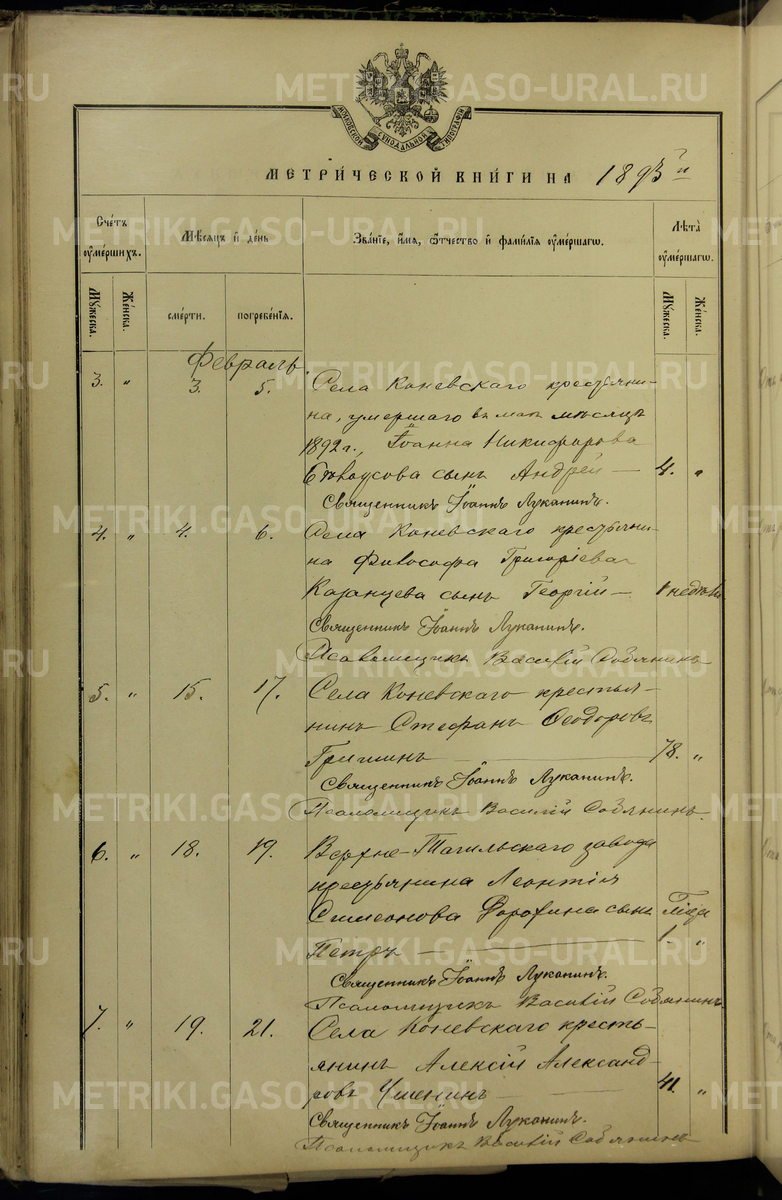 МОСКОВСКОЙ СѴНОДАЛЬНОЙ ТИПОГРАФІИ
МЕТРИЧЕСКОЙ КНИГИ НА 1893й
Счетъ оумершихъ.
Мѣсяцъ и день
Званіе, имя, отчество и фамилія оумершагѡ.
Лѣта оумершагѡ.
Мужеска.
Женска.
смерти.
погребенія.
Мужеска.
Женска.
Февраль.
3. " 3. 5. Села Коневскаго крестьяни-
на, умершаго въ маѣ мѣсяцѣ
1892 г., Іоанна Никифорова
Бѣлоусова сынъ Андрей — 4. "
Священникъ Іоаннъ Луканинъ.
4. " 4. 6. Села Коневскаго крестьяни-
на Философа Григоріева
Казанцева сынъ Георгій — недѣли
Священникъ Іоаннъ Луканинъ.
Псаломщикъ Василій Собянинъ
5. " 15. 17. Села Коневскаго крестья-
нинъ Стефанъ Ѳеодоровъ
Гришинъ — 78. "
Священникъ Іоаннъ Луканинъ.
Псаломщикъ Василій Собянинъ.
6. " 18. 19. Верхне-Тагильскаго завода
крестьянина Леонтія
Симеонова Дорофина сынъ Года
Петръ — 1. "
Священникъ Іоаннъ Луканинъ.
Псаломщикъ Василій Собянинъ.
7. " 19. 21. Села Коневскаго кресть-
янинъ Алексій Александ-
ровъ Ушенинъ — 41. "
Священникъ Іоаннъ Луканинъ.
Псаломщикъ Василій Собянинъ
METRIKI.GASO-URAL.RU